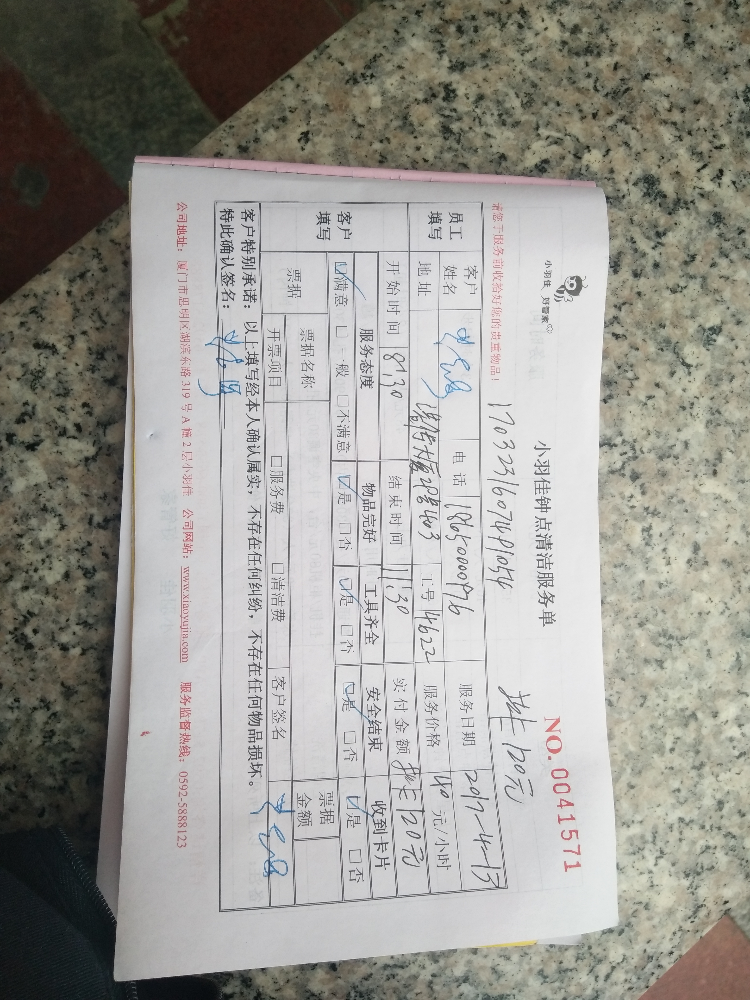 小羽佳 好管家
小羽佳钟点清洁服务单
NO. 0041571
1703231607491054
120元
请您于服务前收拾好您的贵重物品！
员工填写 客户姓名 电话 18650000976 服务日期 2017-4-15
地址 28号403 工号 14622 服务价格 40 元/小时
开始时间 8:30 结束时间 11:30 实付金额 120元
客户填写 服务态度 物品完好 工具齐全 安全结束 收到卡片
☑满意 □一般 □不满意 ☑是 □否 ☑是 □否 ☑是 □否 ☑是 □否
票据 票据名称 票据金额
开票项目 □服务费 □清洁费 客户签名
客户特别承诺：以上填写经本人确认属实，不存在任何纠纷，不存在任何物品损坏。
特此确认签名：
公司地址：厦门市思明区湖滨东路 319 号 A 幢 2 层小羽佳 公司网站：www.xiaoyujia.com 服务监督热线：0592-5888123